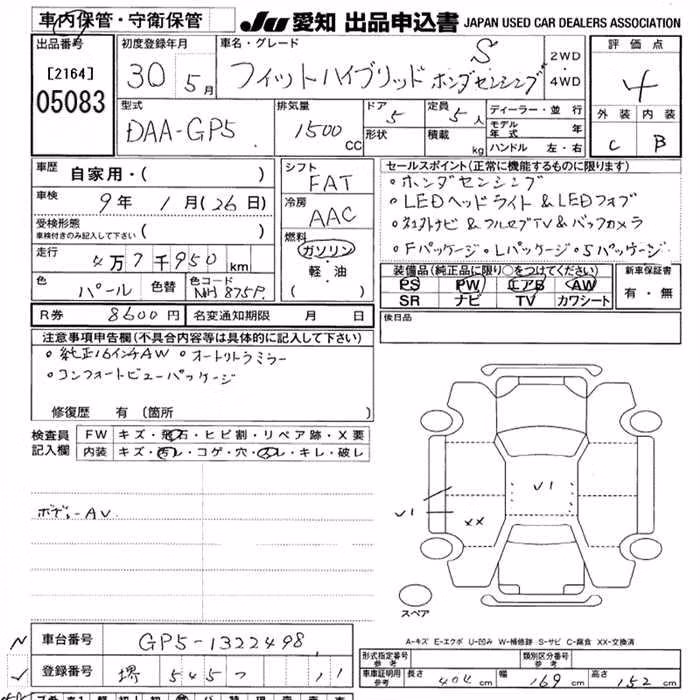 車内保管・守衛保管 JU 愛知 出品申込書 JAPAN USED CAR DEALERS ASSOCIATION
出品番号 初度登録年月 車名・グレード 評価点
[2164] 30 . 5月 フィットハイブリッド ホンダセンシング S 2WD・4WD 4
05083
型式 排気量 ドア 定員 ディーラー・並行 外装 内装
DAA-GP5 1500cc 5 5人 モデル年式 年 C B
形状 積載 kg ハンドル 左・右
車歴 自家用・( ) シフト セールスポイント(正常に機能するものに限ります)
FAT ◦ホンダセンシング
車検 9年 1月(26日) 冷房 ◦LEDヘッドライト&LEDフォグ
受検形態 AAC ◦純正ナビ&フルセグTV&バックカメラ
車検付きのみ記入して下さい ( ) 燃料 ◦Fパッケージ◦Lパッケージ◦Sパッケージ
走行 4万7千950km ガソリン・軽・油 ( )
装備品(純正品に限り○をつけてください) 新車保証書
色 パール 色替 色コード NH875P PS PW エアB AW 有・無
SR ナビ TV カワシート
R券 8600円 名変通知期限 月 日 後日品
注意事項申告欄(不具合内容等は具体的に記入して下さい)
◦純正16インチAW ◦オートリトラミラー
◦コンフォートビューパッケージ
修復歴 有(箇所 )
検査員記入欄 FW キズ・飛石・ヒビ割・リペア跡・X要
内装 キズ・汚レ・コゲ・穴・スレ・キレ・破レ
ボディーAV
V1
V1 XX
スペア
A-キズ E-エクボ U-凹み W-補修跡 S-サビ C-腐食 XX-交換済
車台番号 GP5-1322498
型式指定番号 参考 類別区分番号 参考
登録番号 堺 545 つ 11
車庫証明用 参考 長さ 404cm 幅 169cm 高さ 152cm